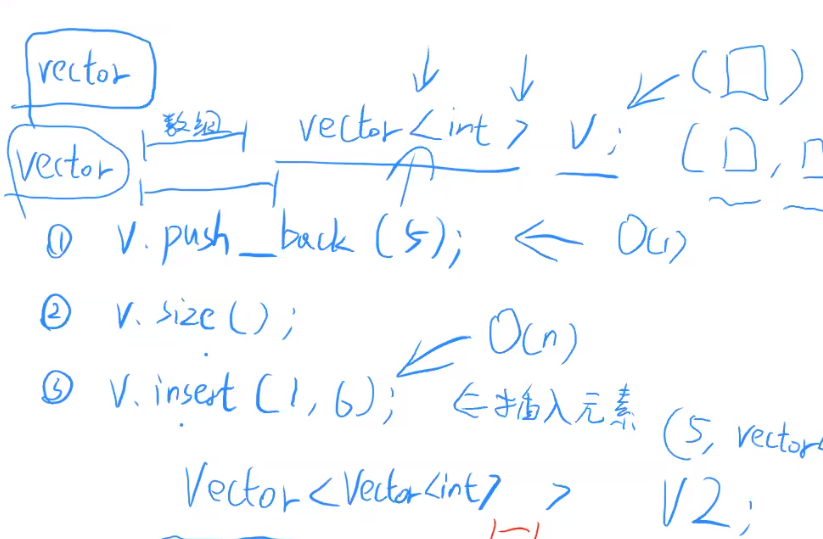 vector
数组 vector<int> v; (□)
vector (□,
① v.push_back(5); ← O(1)
② v.size();
O(n)
③ v.insert(1,6); ← 插入元素
(5, vector<
Vector<Vector<int> > V2;